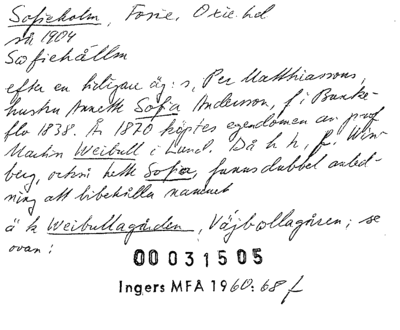 Sofieholm, Fosie, Oxie hd
så 1904
Sofiehållm
efter en tidigare äg:s, Per Matthiassons,
hustru Anneth Sofia Andersson, f i Bunke-
flo 1838. År 1870 köptes egendomen av prof
Martin Weibull i Lund. Då h h, f. Win-
berg, också hett Sofia, fanns dubbel anled-
ning att bibehålla namnet
ä k Weibullagården, Växbollagåren; se
ovan!
00031505
Ingers MFA 1960:68 f